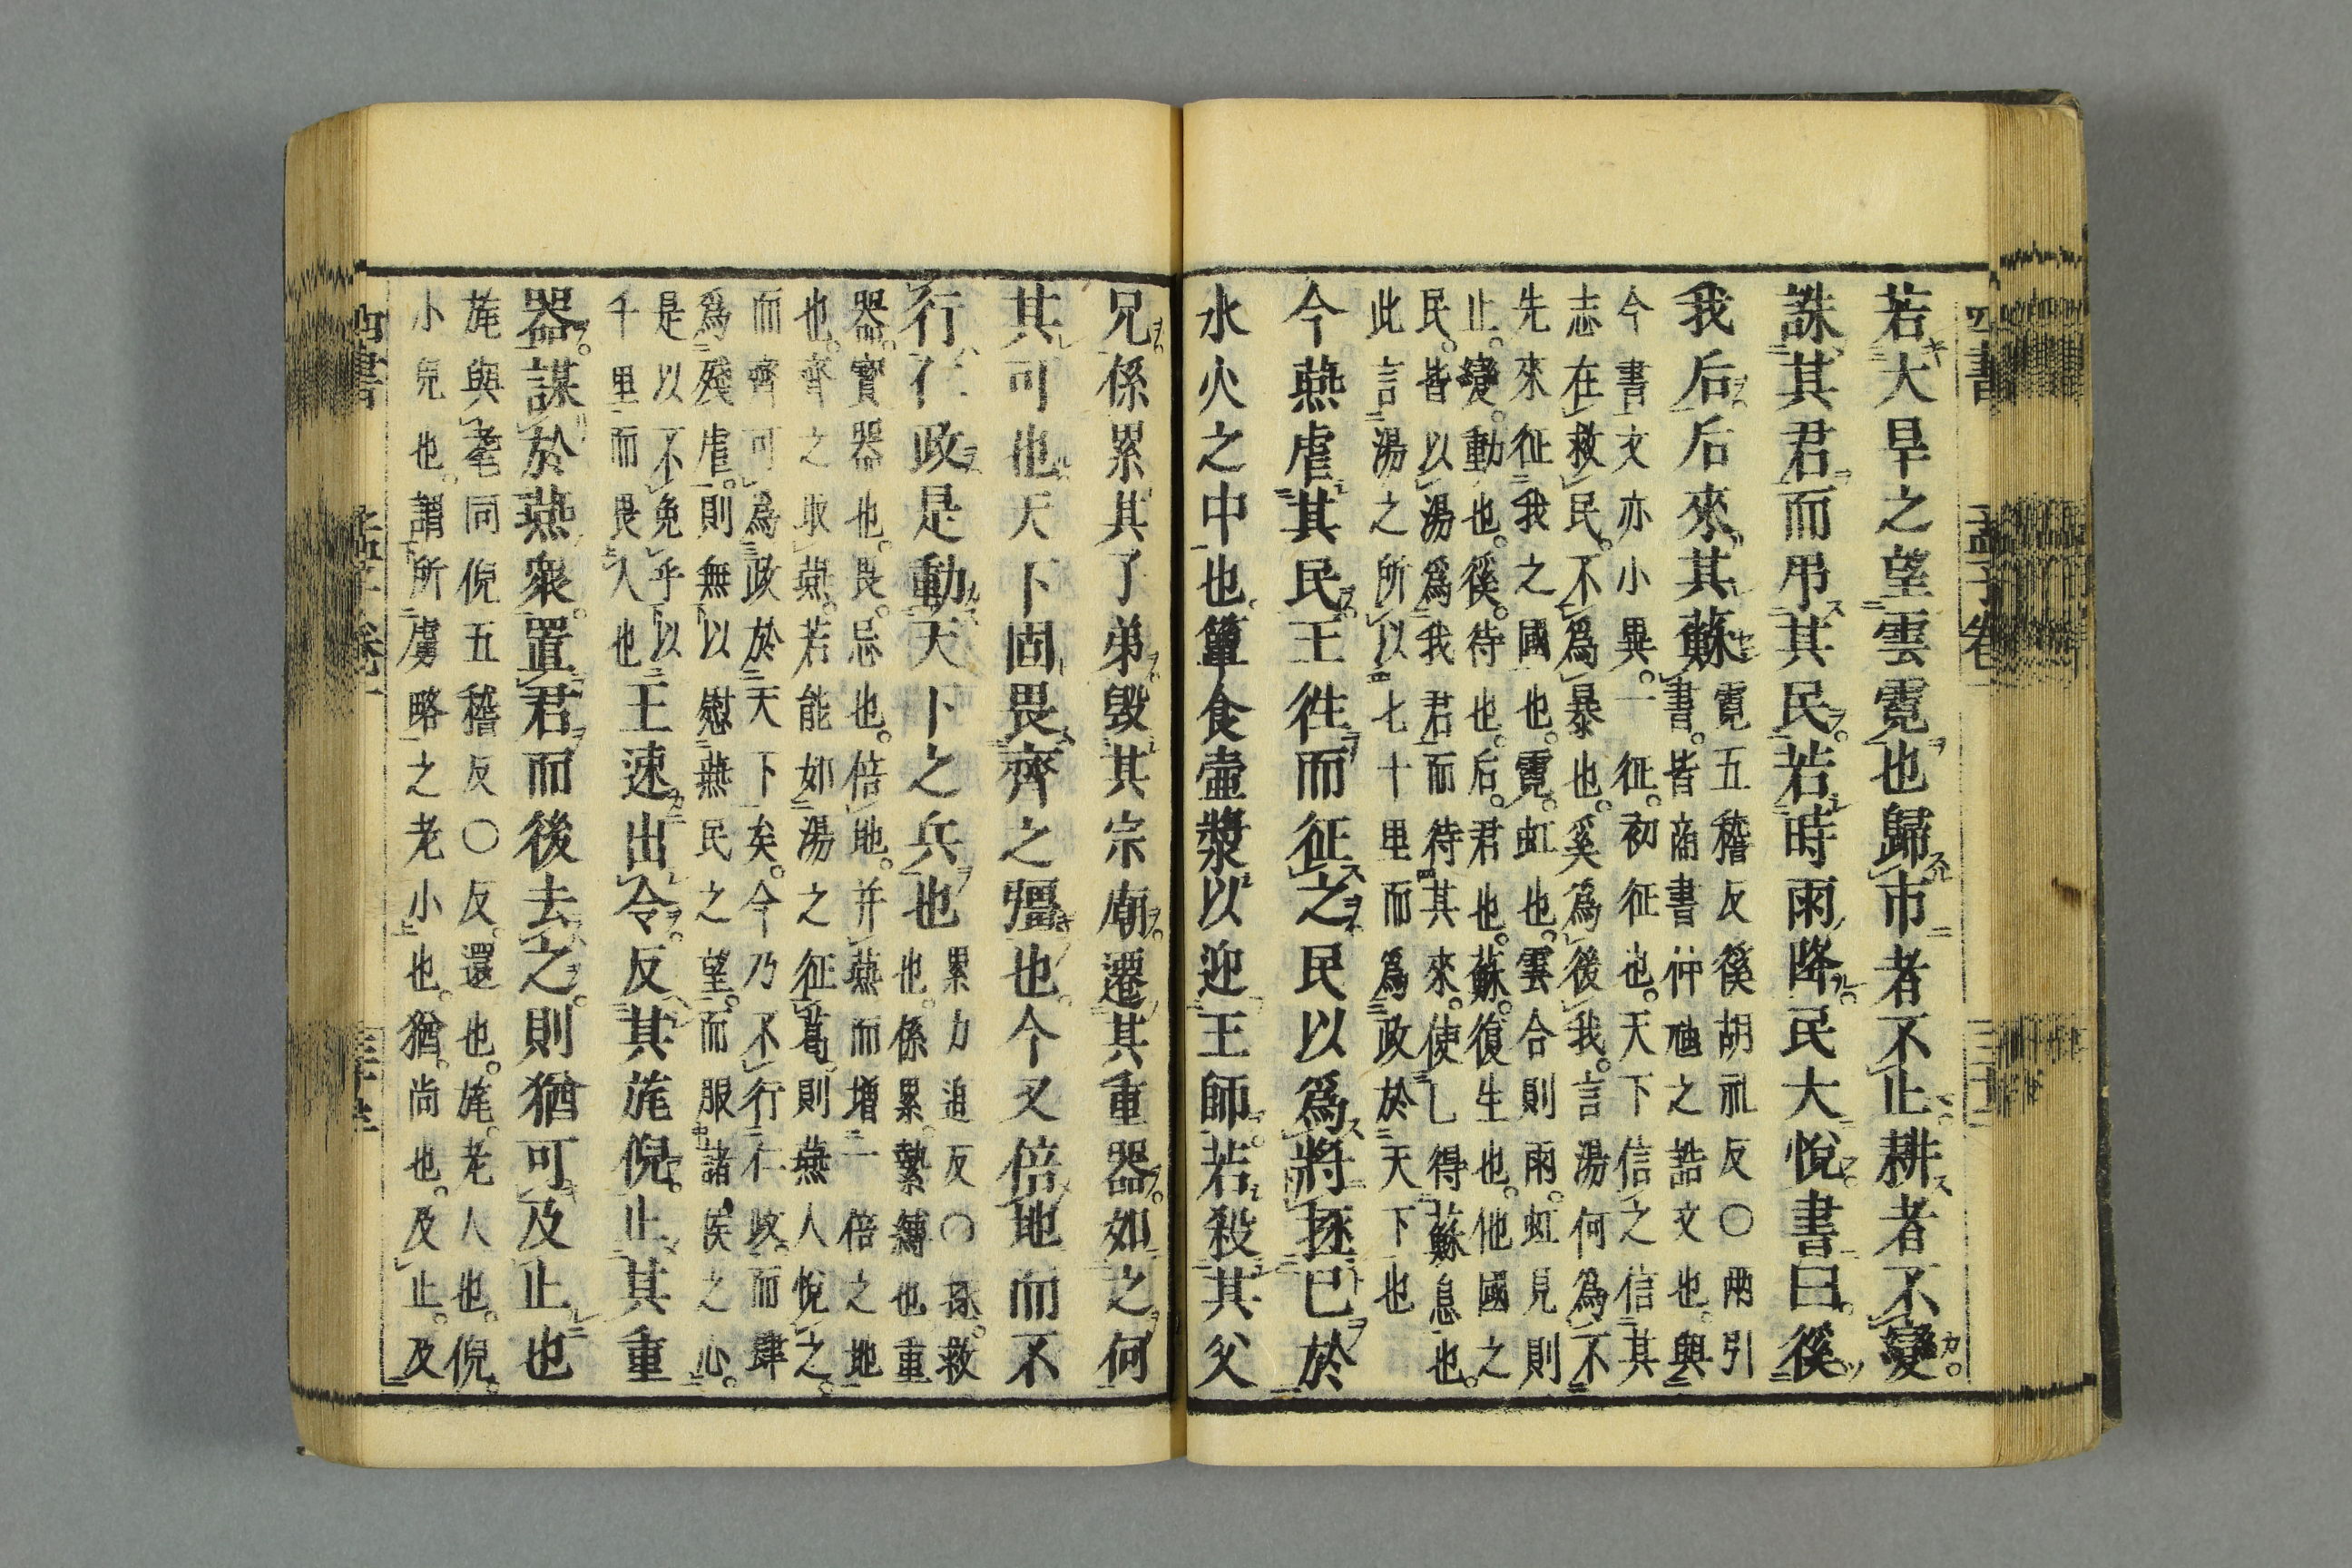 四書 孟子卷一
若大旱之望雲霓也歸市者不止耕者不變
誅其君而吊其民若時雨降民大悅書曰徯
我后后來其蘇
霓五稽反徯胡禮反○兩引
書皆商書仲虺之誥文也與
今書文亦小異一征初征也天下信之信其
志在救民不爲暴也奚爲後我言湯何爲不
先來征我之國也霓虹也雲合則雨虹見則
止變動也徯待也后君也蘇復生也他國之
民皆以湯爲我君而待其來使已得蘇息也
此言湯之所以七十里而爲政於天下也
今燕虐其民王往而征之民以爲將拯己於
水火之中也簞食壺漿以迎王師若殺其父
兄係累其子弟毀其宗廟遷其重器如之何
其可也天下固畏齊之彊也今又倍地而不
行仁政是動天下之兵也
累力追反○拯救
也係累縶縛也重
器寶器也畏忌也倍地并燕而增一倍之地
也齊之取燕若能如湯之征葛則燕人悅之
而齊可爲政於天下矣今乃不行仁政而肆
爲殘虐則無以慰燕民之望而服諸侯之心
是以不免乎以
千里而畏人也
王速出令反其旄倪止其重
器謀於燕衆置君而後去之則猶可及止也
旄與耄同倪五稽反○反還也旄老人也倪
小兒也謂所虜略之老小也猶尚也及止及
四書 孟子卷一